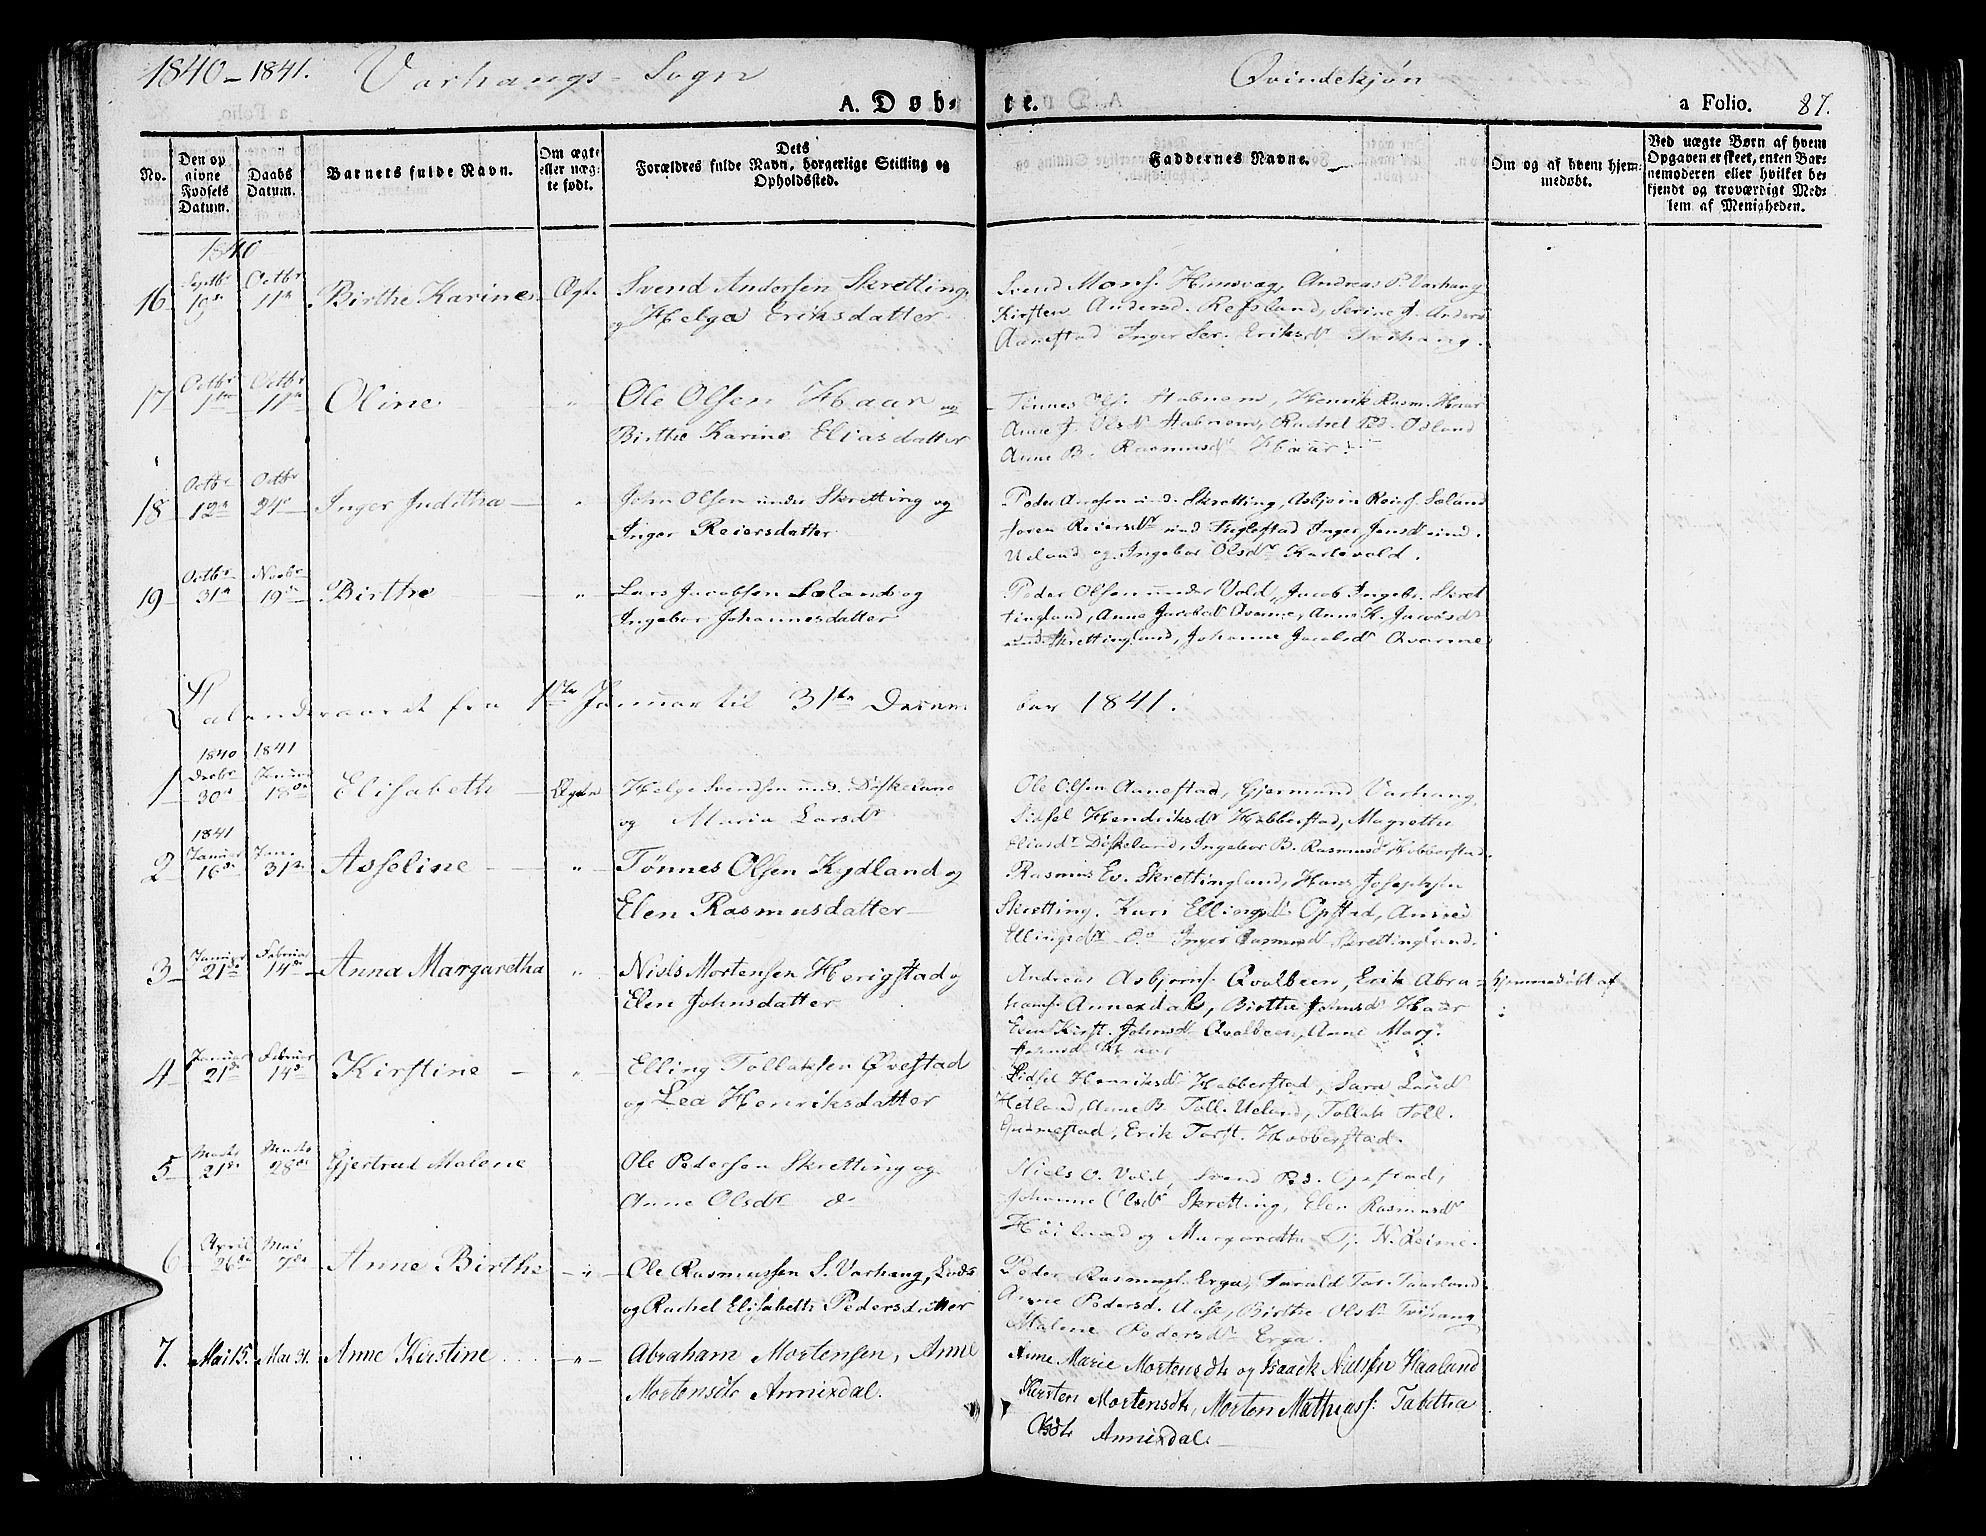 1840–1841. Varhaugs-Sogn Qvindekjøn
A. Døb- te. a Folio. 87.
No.
Den op givne Fødsels Datum.
Daabs Datum.
Barnets fulde Navn.
Om ægte eller uæg- te født.
Dets
Forældres fulde Navn, borgerlige Stilling og
Opholdssted.
Faddernes Navne.
Om og af hvem hjem- medøbt.
Ved uægte Børn af hvem
Opgaven er skeet, enten Bar-
nemoderen eller hvilket be-
kjendt og troværdigt Med-
lem af Menigheden.
1840
16 Septbr 19de Octbr 11te Birthe Karine Ægte Svend Andersen Skretting
og Helga Eriksdatter
Svend Mons. Hunsvag, Andreas P. Varhaug
Kirsten Andersd. Refsland, Serine A. Anders
Aanestad Inger Ser. Eriksdr Tvihaug.
17 Octbr 1ste Octbr 11te Oline " Ole Olsen Haar og
Birthe Karine Eliasdatter
Tønnes Ols. Aabnem, Henrik Rasm. Haar
Anne J. Olsdr Aabnem, Rachel Odland
Anne B. Rasmusdr Haar.
18 Octbr 12te Octbr 24de Inger Juditha " John Olsen under Skretting og
Inger Reiersdatter
Peder Aanesen und. Skretting, Asbjørn Reiers. Sæland
Reiersdr und Fuglestad Inger Jensdr und.
Ueland og Ingebor Olsdr Karlsvold.
19 Octbr 31te Novbr 19de Birthe " Lars Jacobsen Sæland og
Ingebor Johannesdatter
Peder Olsen under Vold, Jacob Ingebr. Skret
tingland, Anne Jacobsdr Qvarme, Anne K. Jacobsdr
und. Skrettingland, Johanne Jacobsdr Qvarme
Kalenderaaret fra 1ste Januar til 31te Decem ber 1841.
1840 1841
1 Decbr 30te Januar 18de Elisabeth Ægte Helge Svendsen und. Døskeland
og Maria Larsdr
Ole Olsen Aanestad, Gjermund Varhaug,
Sidsel Hendriksdr Hobberstad, Magrethe
Eliasdr Døskeland, Ingebor B. Rasmusdr Hobberstad.
1841
2 Januar 16de Jan. 31te Asseline " Tønnes Olsen Kydland og
Elen Rasmusdatter
Rasmus Ev. Skrettingland, Hans Josephsen
Skretting, Kari Ellingsdr Opstad,
Ellingsdr do Inger Rasmusdr Skrettingland.
3 Januar 21de Februar 14de Anna Margaretha " Niels Mortensen Herigstad og
Elen Johnsdatter
Andreas Asbjørns. Qvalbeen, Erik Abra
hams. Annexdal, Birthe Johnsdr Haar
Kirst. Johnsdr Qvalbeen, Anne Marg.
Johnsdr Haar
hjemmedøbt af
4 Januar 21de Februar 14de Kirstine " Elling Tollaksen Øvestad
og Lea Henriksdatter
Sidsel Henriksdr Hobberstad, Sara Larsdr
Hetland, Anne B. Toll. Ueland, Tollak Toll.
Erik Torst. Hobberstad.
5 Marts 21de Marts 28de Gjertrud Malene Ole Pedersen Skretting og
Anne Olsdr do
Niels O. Vold, Svend Pd. Opstad,
Johanne Olsdr Skretting, Elen Rasmusdr
Høiland og Margarethe Tj. N. Reime.
6 April 26de Mai 7de Anne Birthe " Ole Rasmussen S. Varhaug, Lods
og Rachel Elisabeth Pedersdatter
Peder Rasmus. Erga, Tarald Tar. Taarland
Anne Pedersd. Aase, Birthe Olsdr Tvihaug
Malene Pedersdr Erga.
7. Mai 15. Mai 31. Anne Kirstine " Abraham Mortensen, Anne
Mortensdtr Annixdal.
Anne Marie Mortensdtr og Isaack Nielssen Haaland
Kirsten Mortensdtr, Morten Mathiass: Tabitha
Olsdtr Annixdal.